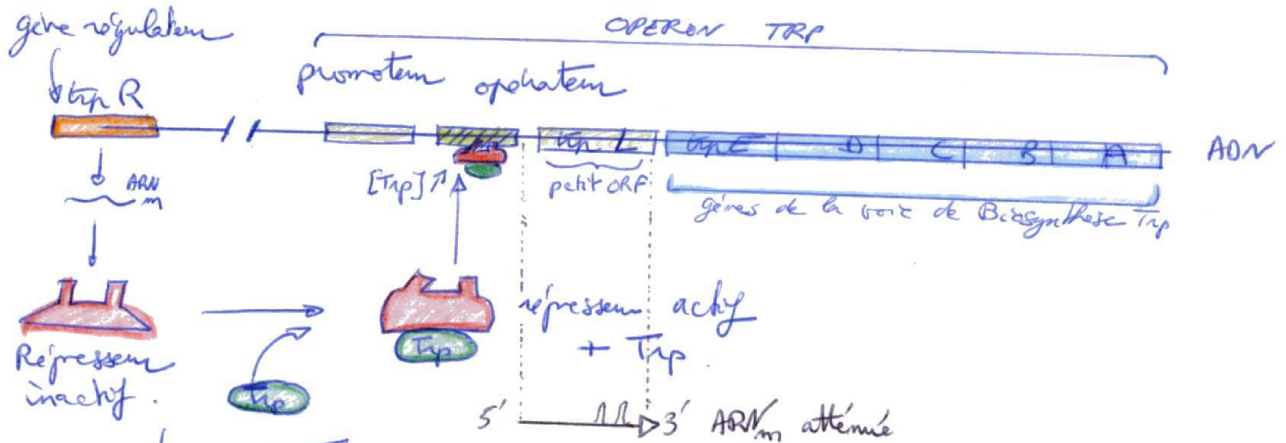 gène régulateur
OPERON TRP
promoteur opérateur
trp R
trp L
trp E D C B A
ADN
ARNm
[Trp] ↗
petit ORF
gènes de la voie de Biosynthèse Trp
répresseur actif
+ Trp
Trp
Répresseur
inactif.
Trp
5' 3' ARNm atténué